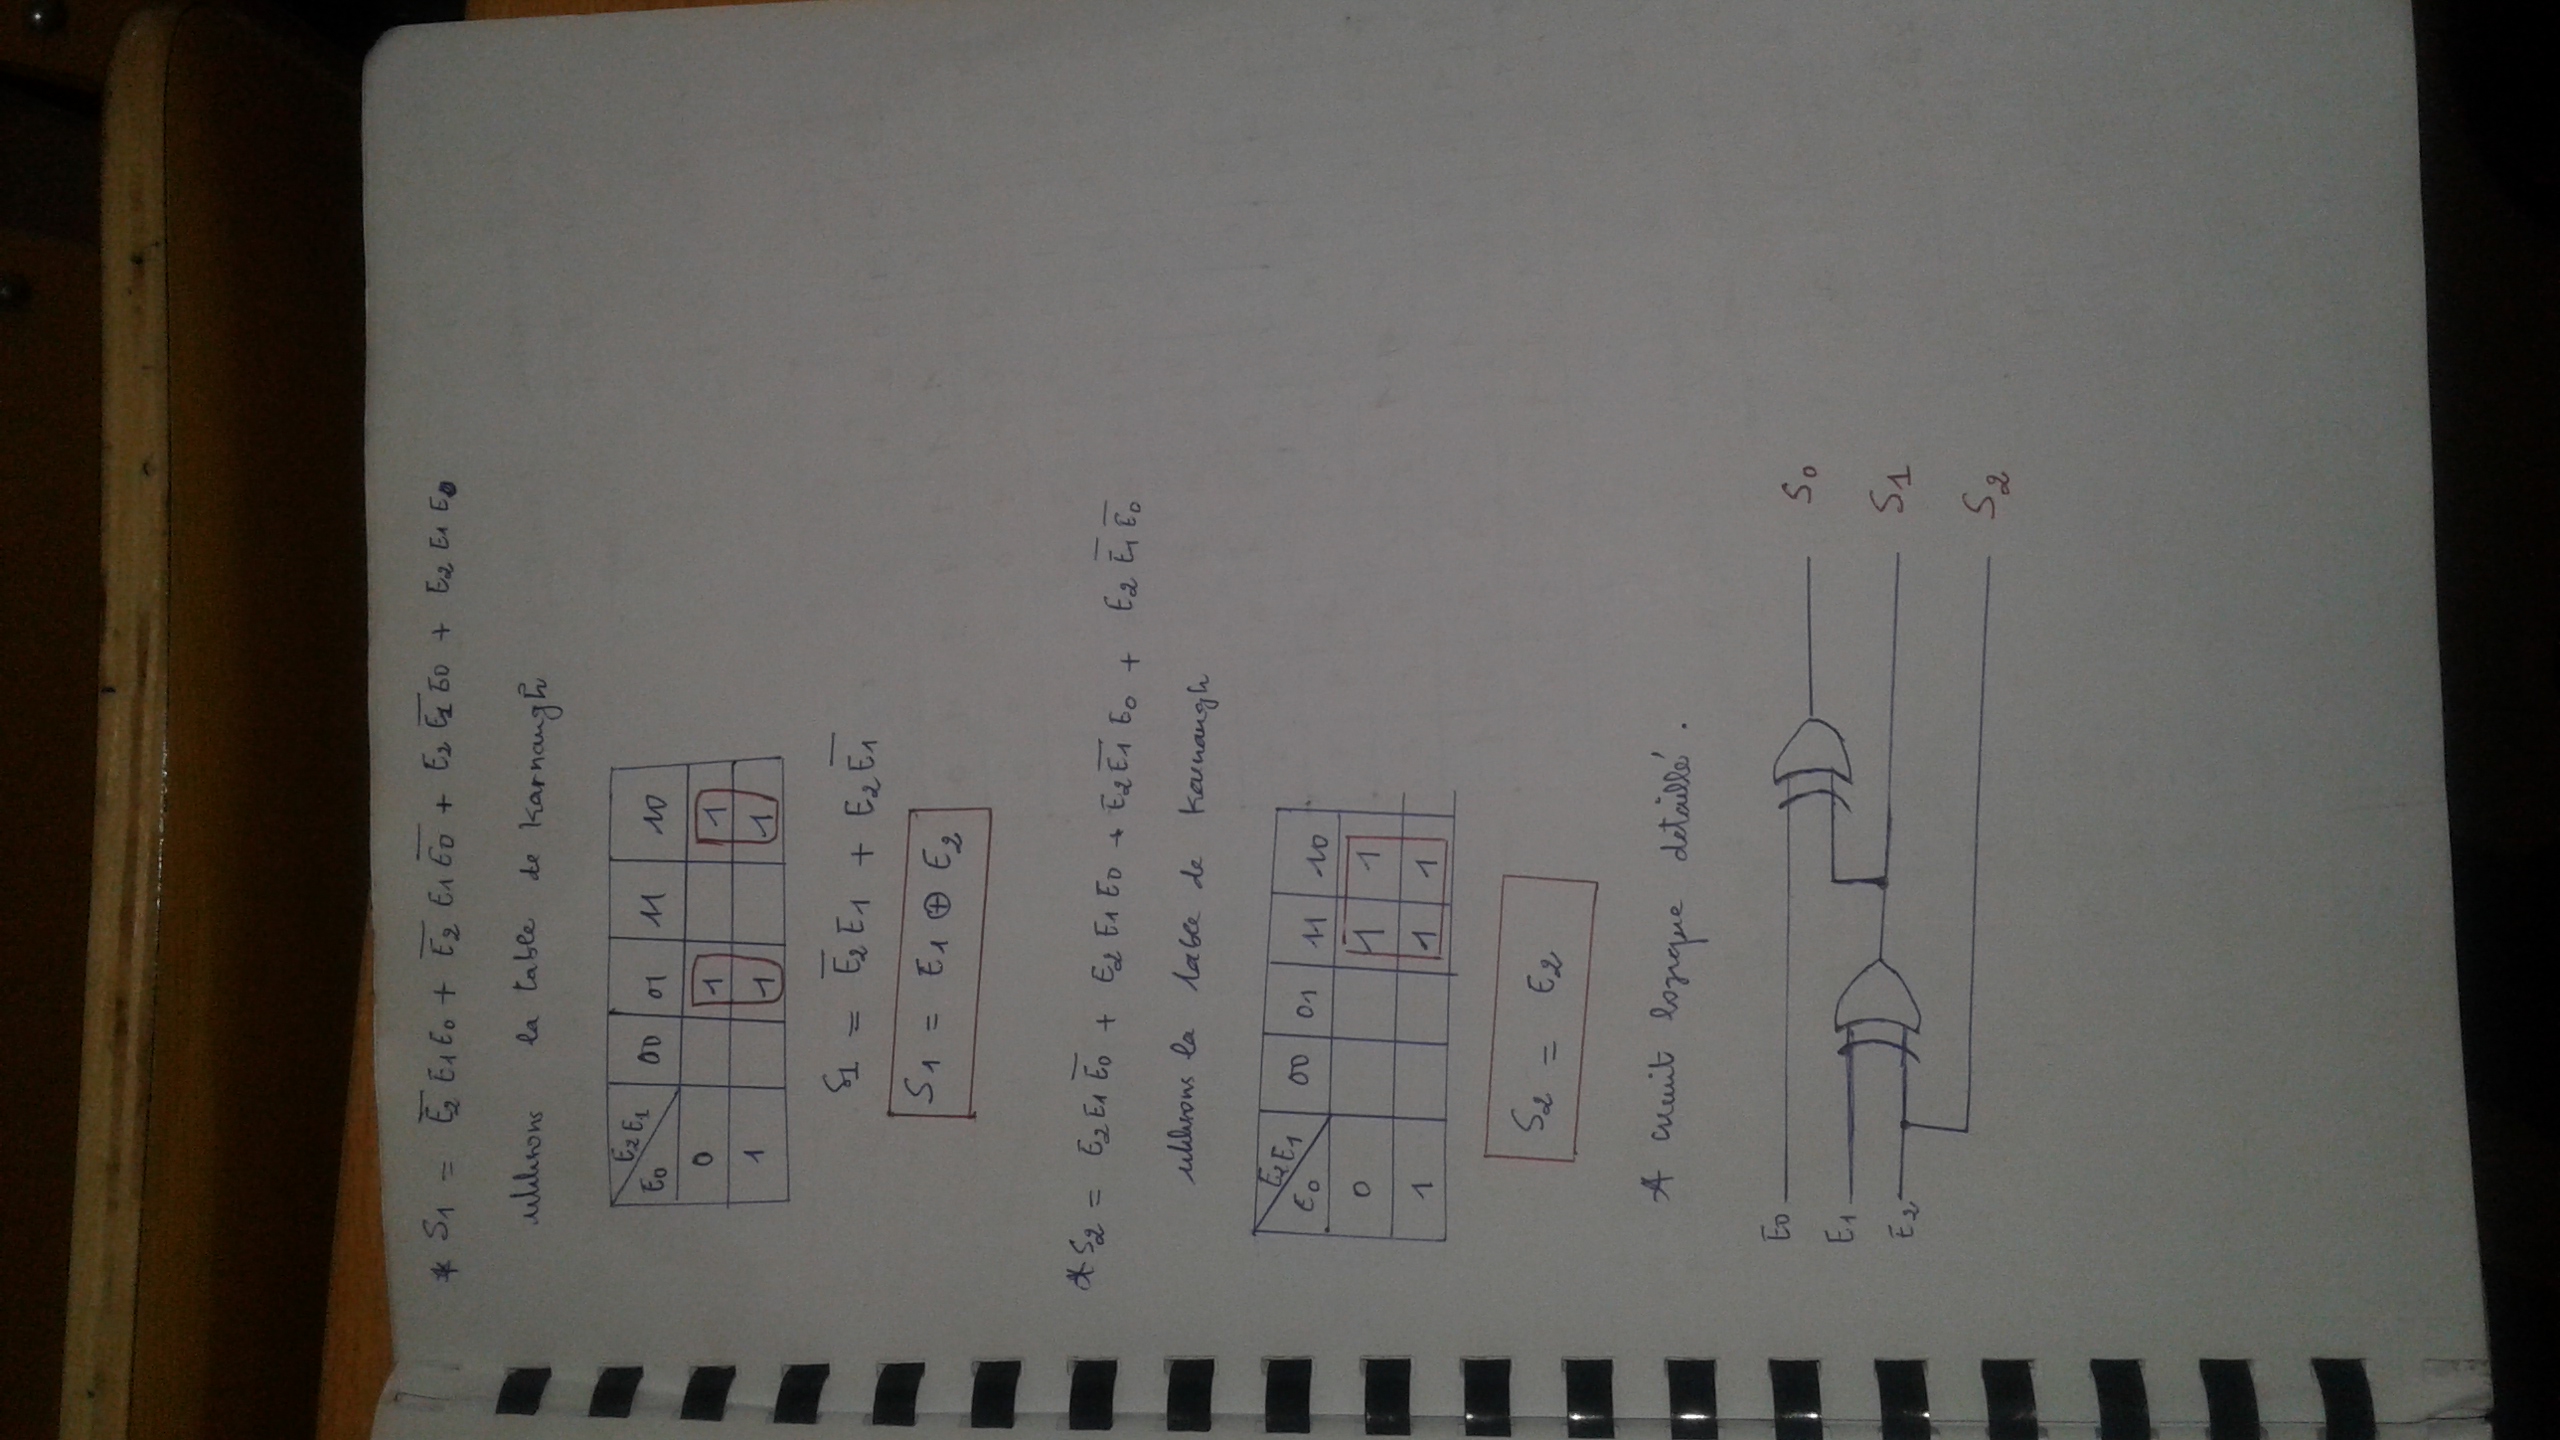 * S1 = E̅2 E1 E0 + E̅2 E1 E̅0 + E2 E̅1 E0 + E2 E1 E0
utilisons la table de Karnaugh
E2 E1
E0 00 01 11 10
0 1 1
1 1 1
S1 = E̅2 E1 + E2 E̅1
S1 = E1 ⊕ E2
* S2 = E2 E1 E̅0 + E2 E1 E0 + E2 E̅1 E0 + E2 E̅1 E̅0
utilisons la table de Karnaugh
E2 E1
E0 00 01 11 10
0 1 1
1 1 1
S2 = E2
* circuit logique détaillé.
E0 S0
E1 S1
E2 S2